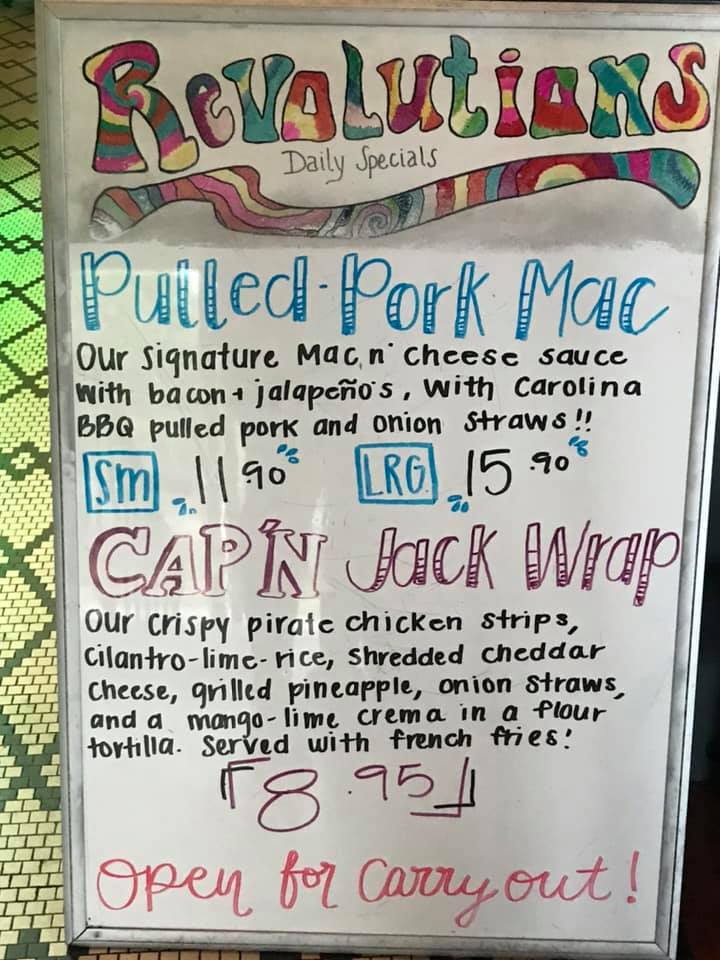 Revolutions
Daily Specials
Pulled-Pork Mac
Our Signature Mac n' cheese sauce
with bacon + jalapeño's, with Carolina
BBQ pulled pork and onion straws!!
Sm 11.90 LRG. 15.90
CAP'N Jack Wrap
Our crispy pirate chicken strips,
cilantro-lime-rice, shredded cheddar
cheese, grilled pineapple, onion straws,
and a mango-lime crema in a flour
tortilla. Served with french fries!
8.95
Open for Carry out!